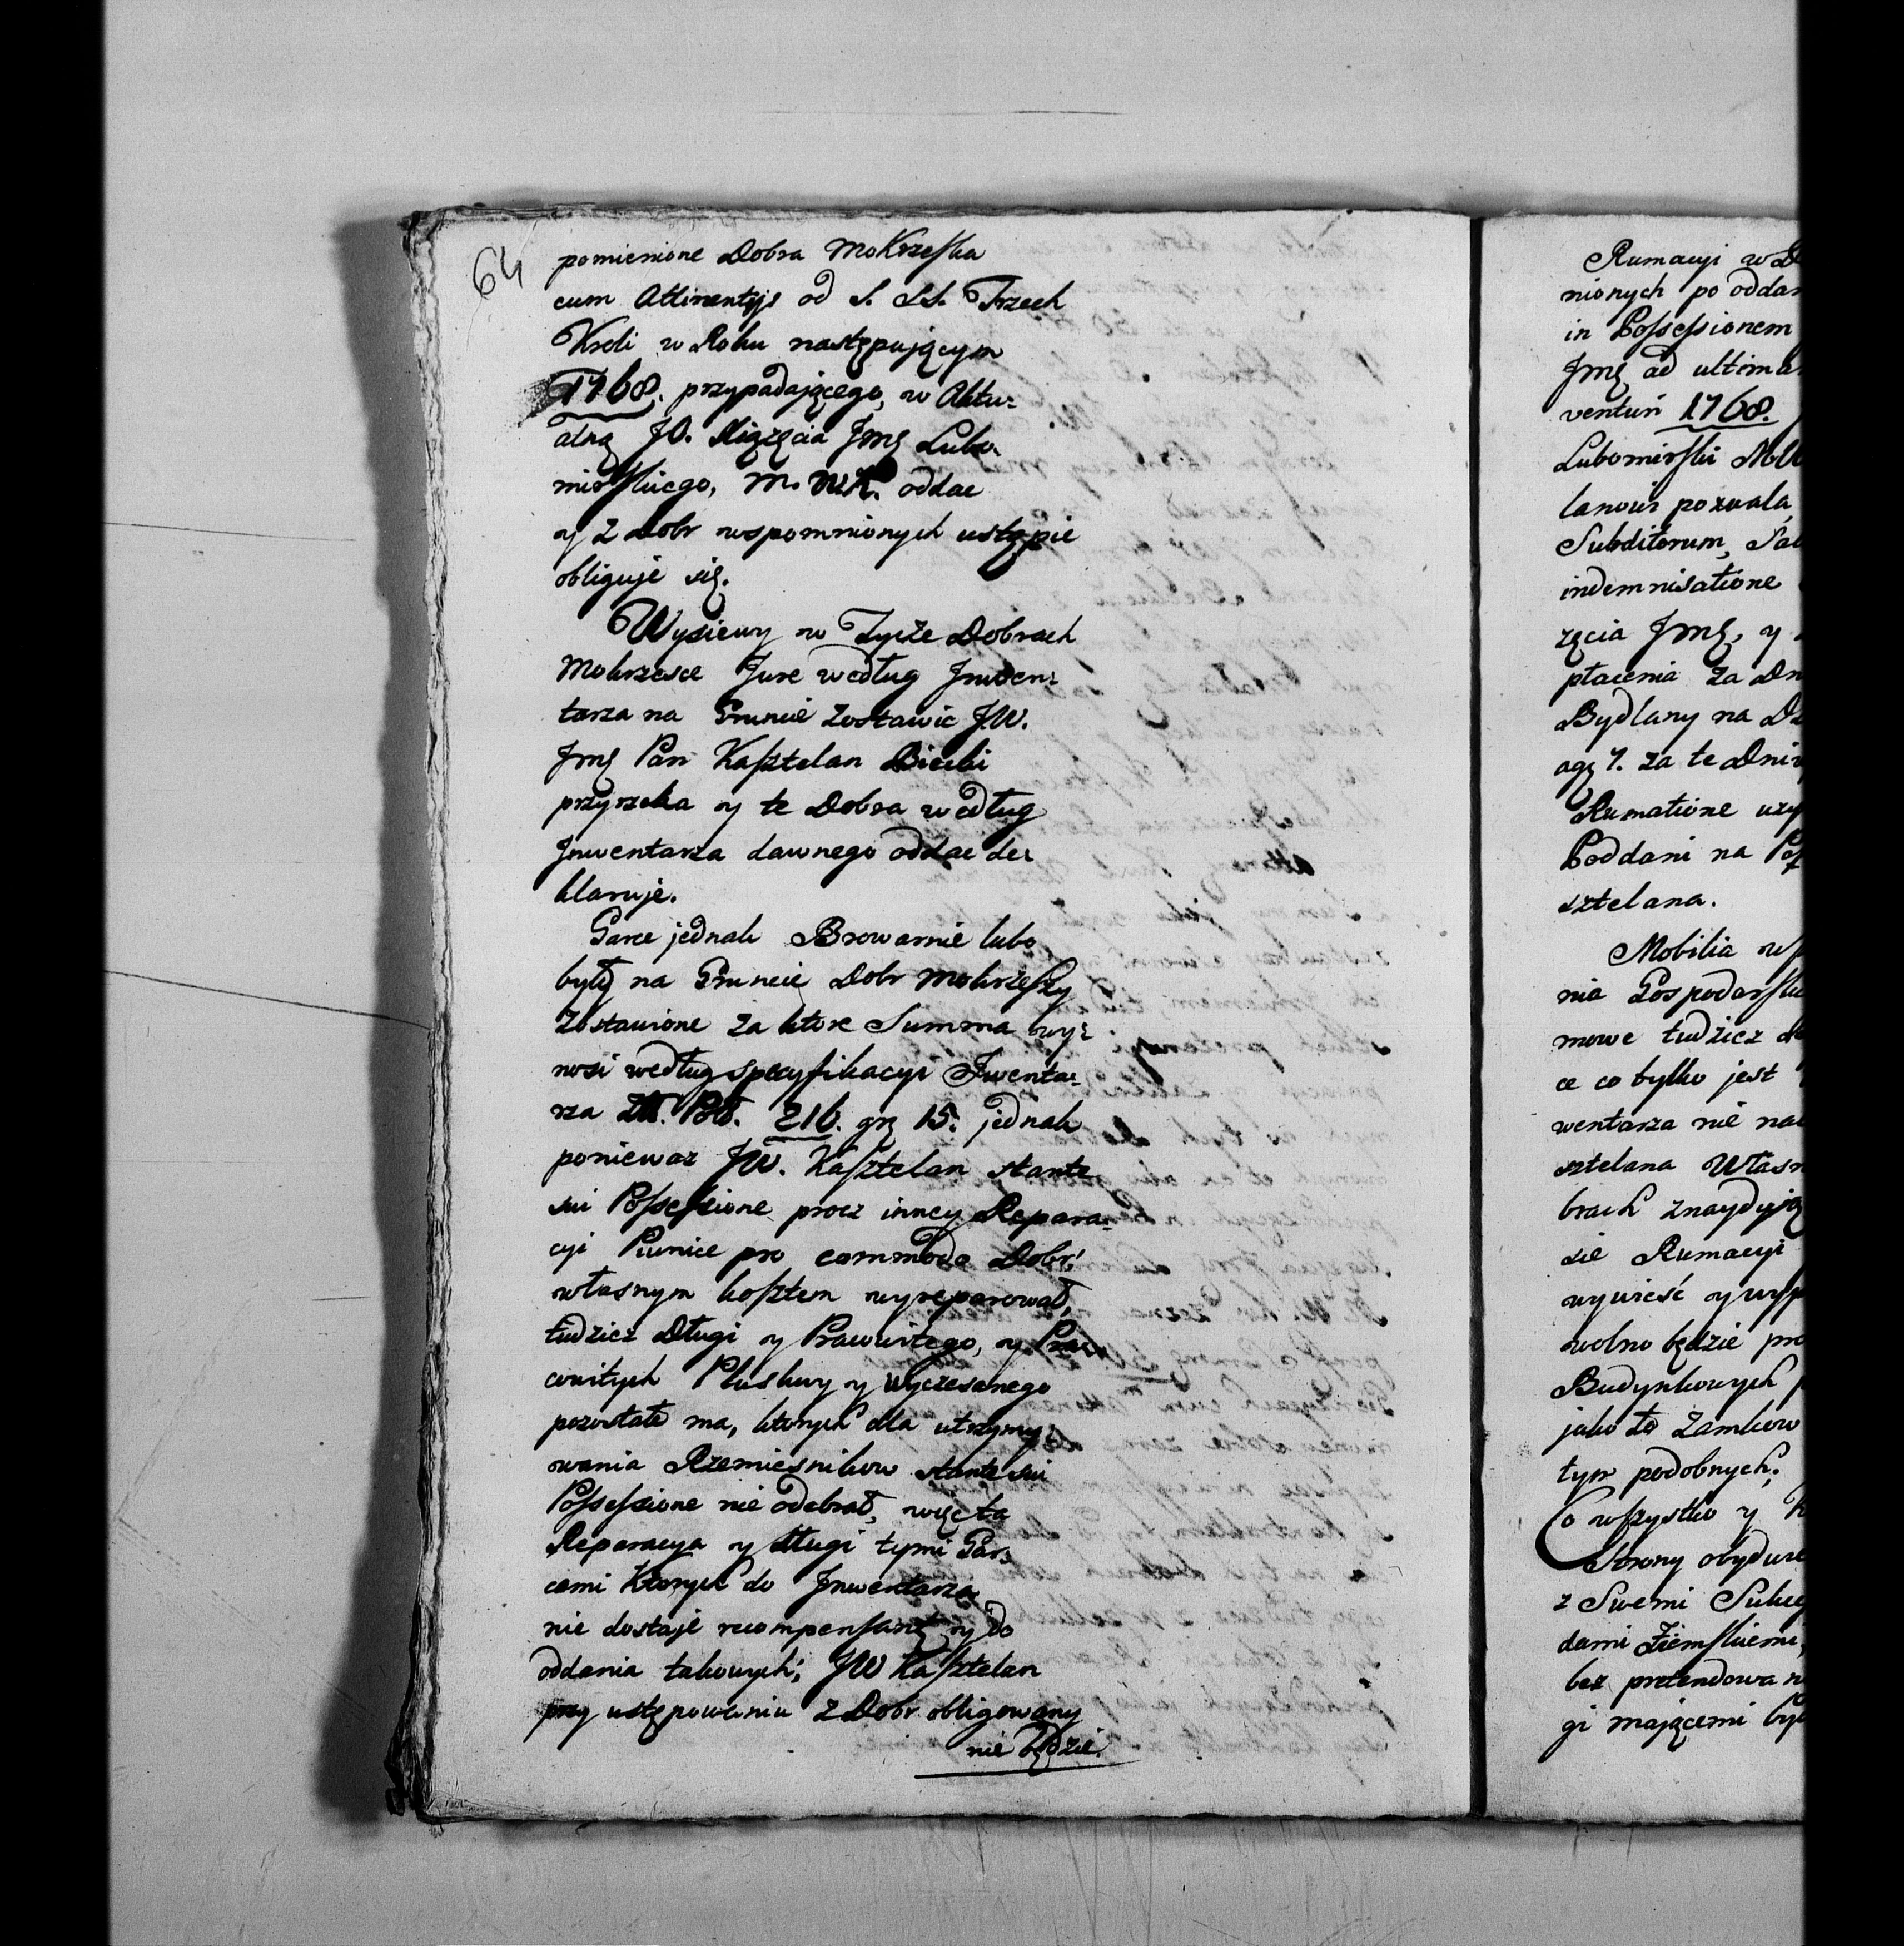 64
pomienione Dobra Mokrzeska
cum Attinentijs od S. SS. Trzech
Kroli w Roku następującym
1768. przypadającego, w Aktu-
alną JO. Xiążęcia Jmę Lubo-
mirskiego, M. W. K. oddac
y z Dobr wspomnionych ustąpic
obliguje się.
Wysiewy w Tychże Dobrach
Mokrzesce Jure według Jnwen-
tarza na Gruncie zostawic J.W.
Jmę Pan Kasztelan Biecki
przyrzeka y te Dobra według
Jnwentarza dawnego oddac de-
klaruje.
Garce jednak Browarnie lubo
były na Gruncie Dobr Mokrzeszy
zostawione za ktore Summa wy-
nosi według specyfikacyi Jwenta-
rza Zł. Pol. 216. grę 15. jednak
poniewaz JW. Kasztelan stante
sui Possessione procz inney Repara-
cyi Piwnice pro commodo Dobr
własnym kosztem wyreparował,
tudziez Długi y Prawitego, y Prac-
cowitych Pluskwy y Wyczesanego
pozostałe ma, ktorych dla utrzymy-
wania Rzemiesnikow stante sui
Possessione nie odebrał, więc ta
Reparacya y długi tymi Gar-
cami ktorych do Jnwentarza
nie dostaje recompensant y do
oddania takowych; JW Kasztelan
przy ustępowaniu z Dobr obligowany
nie będzie.
Rumacyi w D
nionych po oddan
in Possessionem
Jmę ad ultima
venturi 1768.
Lubomirski
lanowi pozwala
Subditorum,
indemnisatione
zęcia Jmę, y
płacenia za Dn
Bydlany na D
agę 7. za te Dni
Rumatione uzy
Poddani na Pos
sztelana.
Mobilia
nia Gospodarskie
mowe tudziez
ce co tylko jest
wentarza nie na
sztelana Własn
brach znaydują
sie Rumacyi
wywiesc y wyp
wolno będzie pro
Budynkowych
jako to Zamkow
tym podobnych;
Co wszystko y
Strony obydwie
z Swemi Sukce
dami Ziemskiemi,
bez pretendowan
gi mającemi by